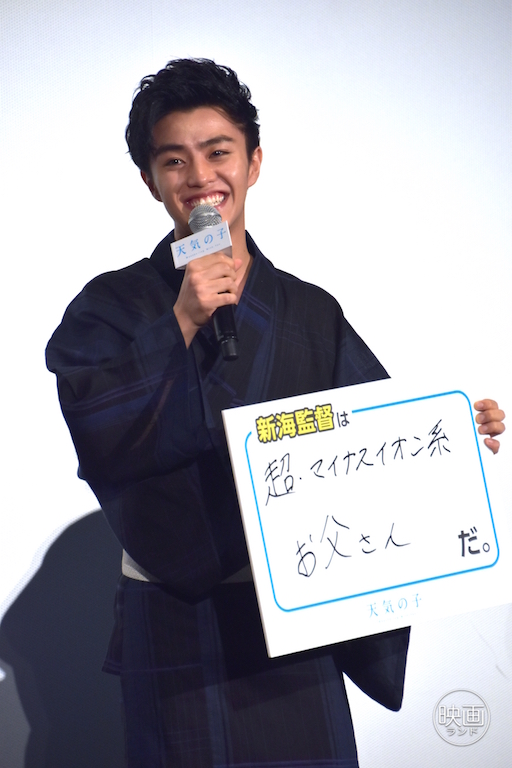 天気の子
新海監督は
超・マイナスイオン系
お父さん だ。
天気の子
映画
ランド